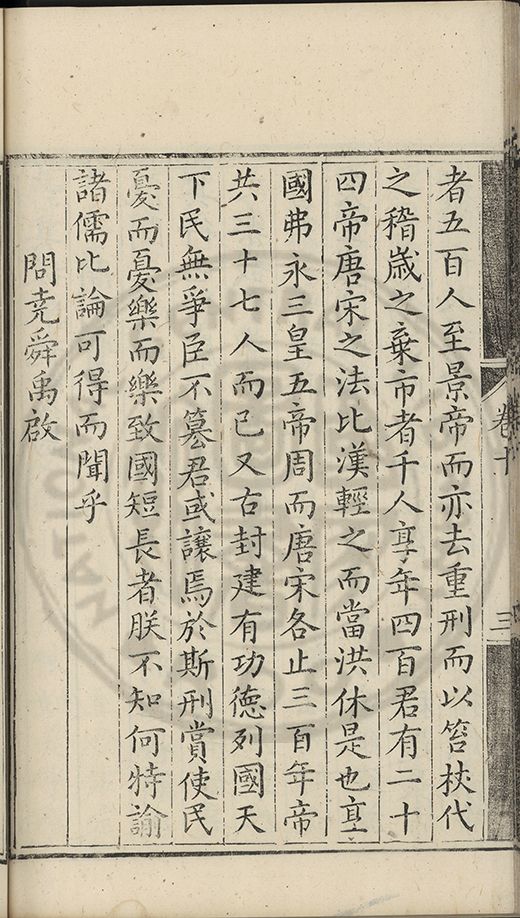 卷十
三
者五百人至景帝而亦去重刑而以笞杖代
之稽歲之棄市者千人享年四百君有二十
四帝唐宋之法比漢輕之而當洪休是也享
國弗永三皇五帝周而唐宋各止三百年帝
共三十七人而已又古封建有功德列國天
下民無爭臣不簒君或讓焉於斯刑賞使民
憂而憂樂而樂致國短長者朕不知何特諭
諸儒比論可得而聞乎
問堯舜禹啟